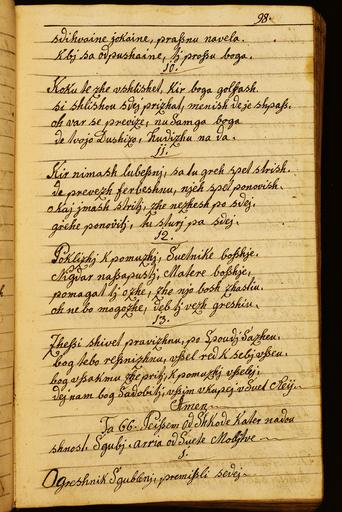 98.
sdihvaine jokaine, praßnu navela.
Kbj sa odpushaine, tj proßu boga.
10.
Koku te zhe vshlishet, Kir boga golfash.
si shlishou sdej prizhat, menish de je shpaß.
oh var se previze, nu samga boga
de tvojo Dushizo, hudizhu na da.
11.
Kir nimash lubeßnj, sa tu greh spet strish.
de prevezh ferbeshnu, njeh spet ponovish.
okaj jmash stritj, zhe nezhesh po sdej.
grehe ponovitj, tu sturj pa sdej.
12.
Poklizhj Kpomuzhj, Suetnike boßhje.
Nigdar naßapustj, Matere boßhje,
pomagat tj ozhe, zhe njo bosh zhastiu.
oh ne bo mogozhe, deb tj vezh greshiu.
13.
Zheßi shivet pravizhnu, po Spoudj sazheu.
bog tebo reßnizhnu, vßel red k sebj vßeu.
bog vßakmu zhe pritj, Kpomuzhj vßelej.
dej nam bog sadobitj, vßjm vkupej v suet Raij
Amen
Ta 66. Peißem od shkode Kater nadou
shnost sgubj. arria od suete Moßhtve
1.
O greshnik sgublenj, premißli sedej